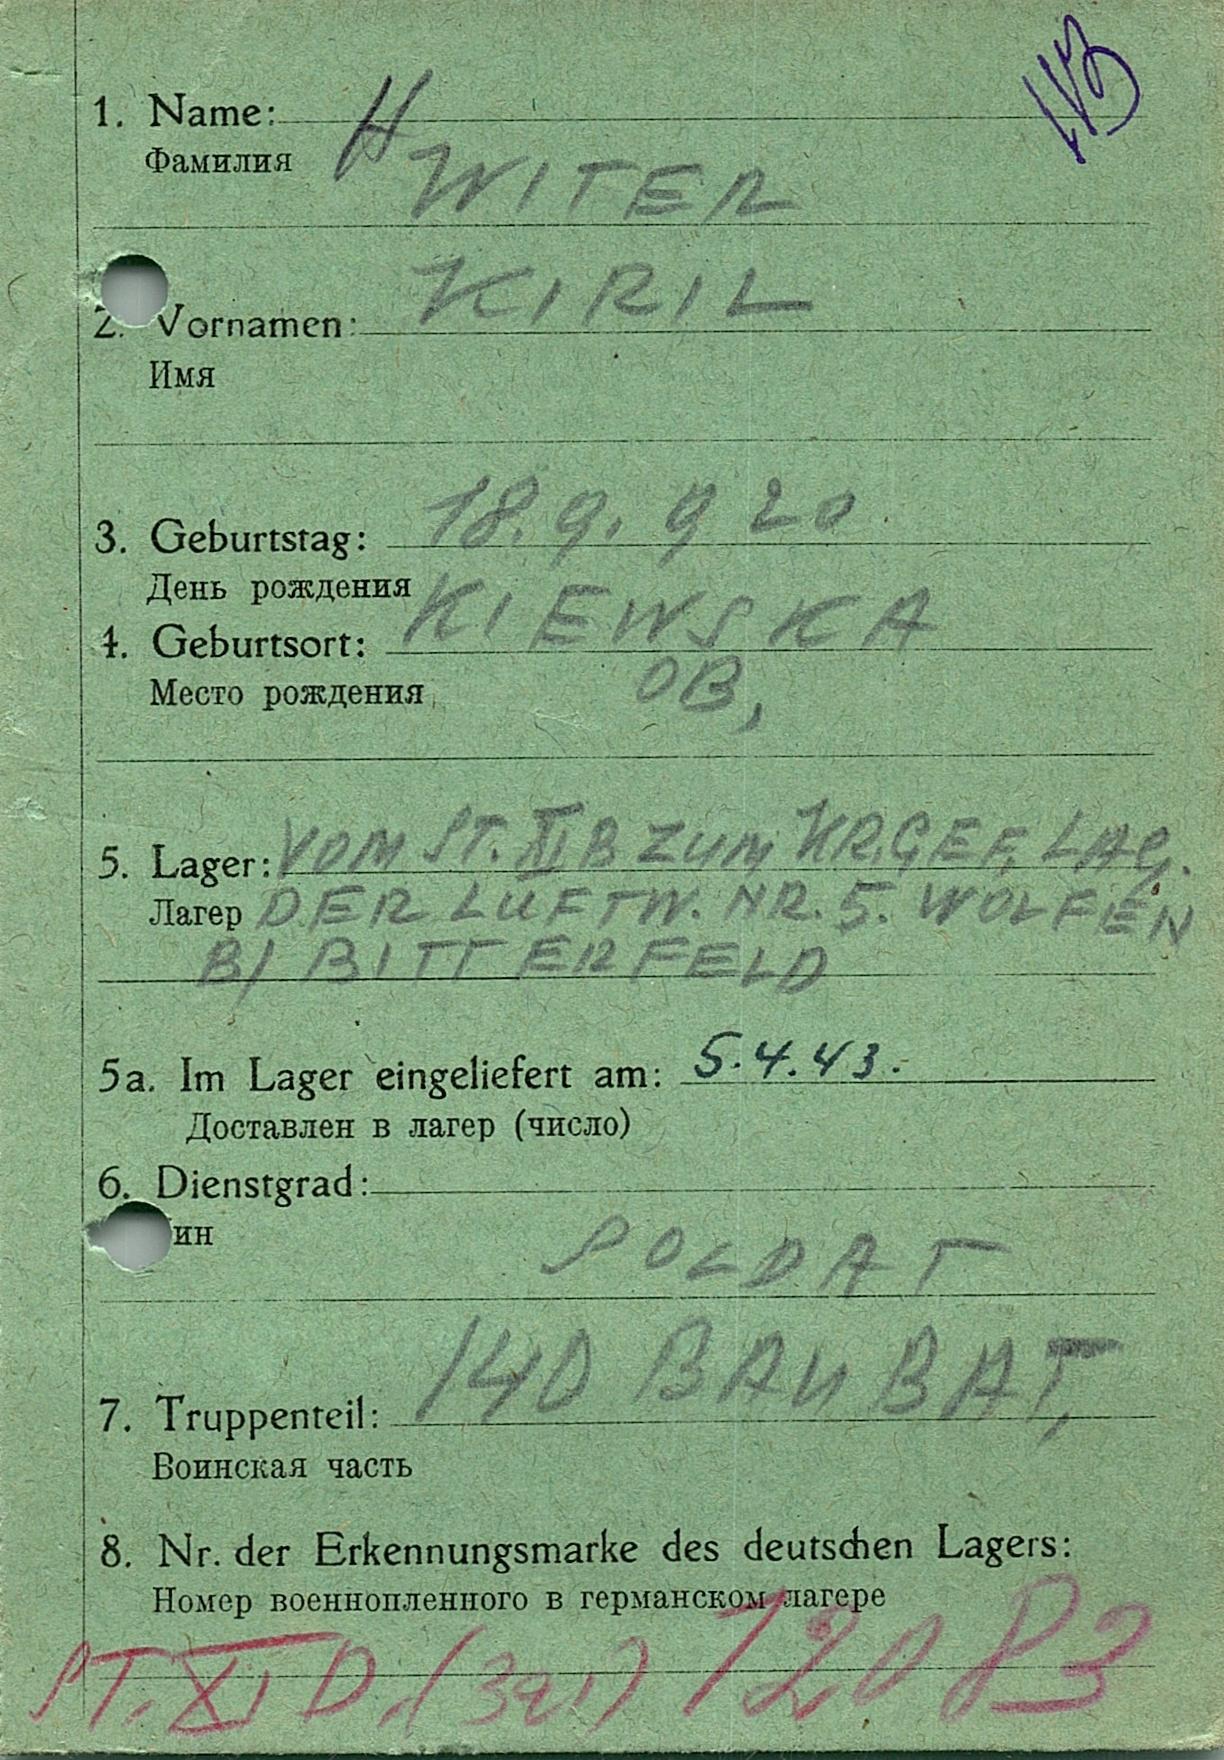 1. Name: H
Фамилия
WITER
KIRIL
2. Vornamen:
Имя
18. 9. 920
3. Geburtstag:
День рождения
KIEWSKA
4. Geburtsort:
OB,
Место рождения
5. Lager: VOM ST. XIB ZUM KR.GEF. LAG.
Лагер DER LUFTW. NR. 5. WOLFEN
B/ BITTERFELD
5a. Im Lager eingeliefert am: 5.4.43.
Доставлен в лагер (число)
6. Dienstgrad:
ин
SOLDAT
140 BAU BAT,
7. Truppenteil:
Воинская часть
8. Nr. der Erkennungsmarke des deutschen Lagers:
Номер военнопленного в германском лагере
ST. XI D. (321) 12083